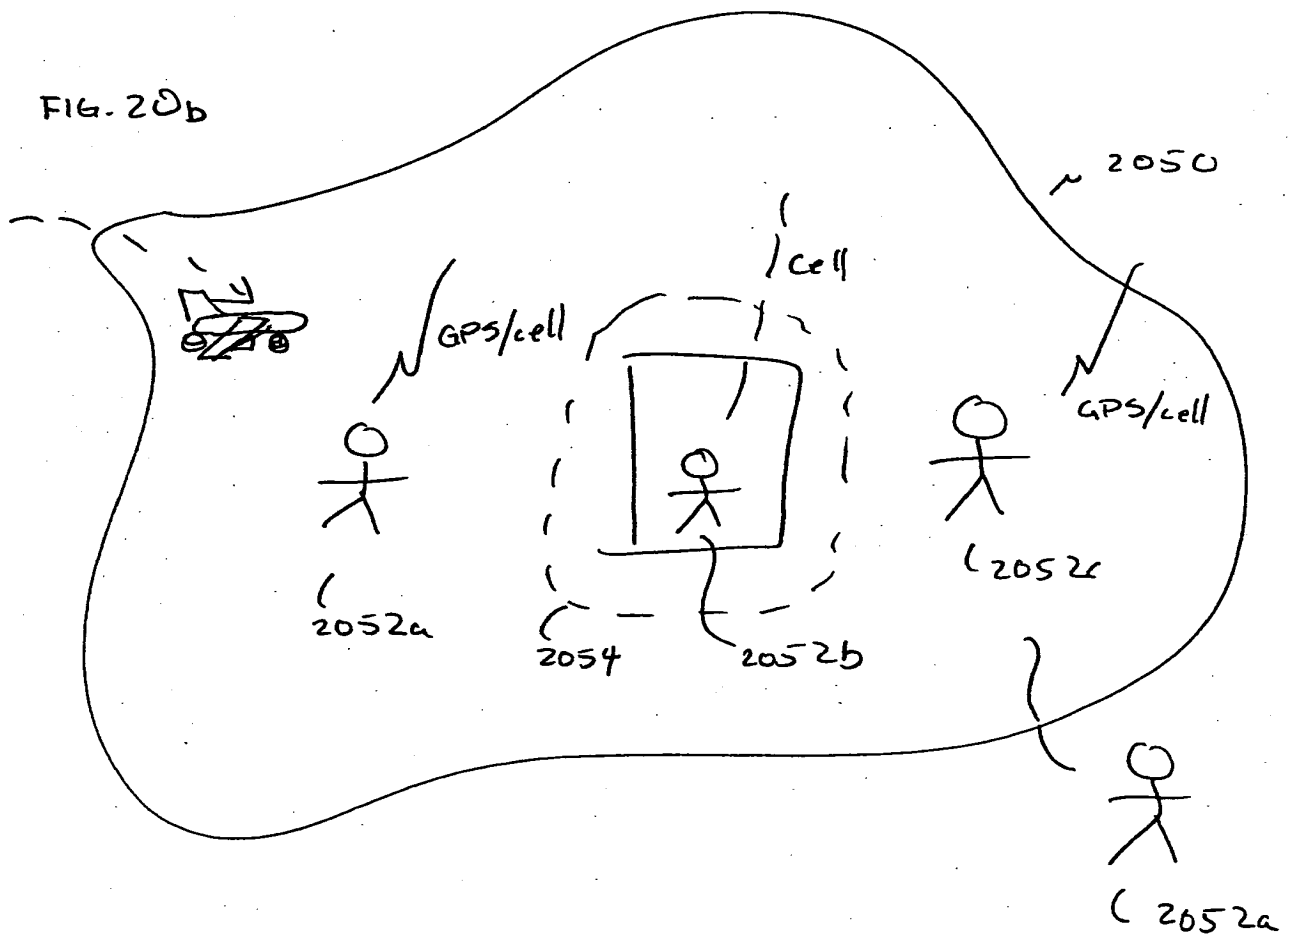 FIG. 20b
2050
cell
GPS/cell
GPS/cell
2052c
2052a
2054
2052b
2052a